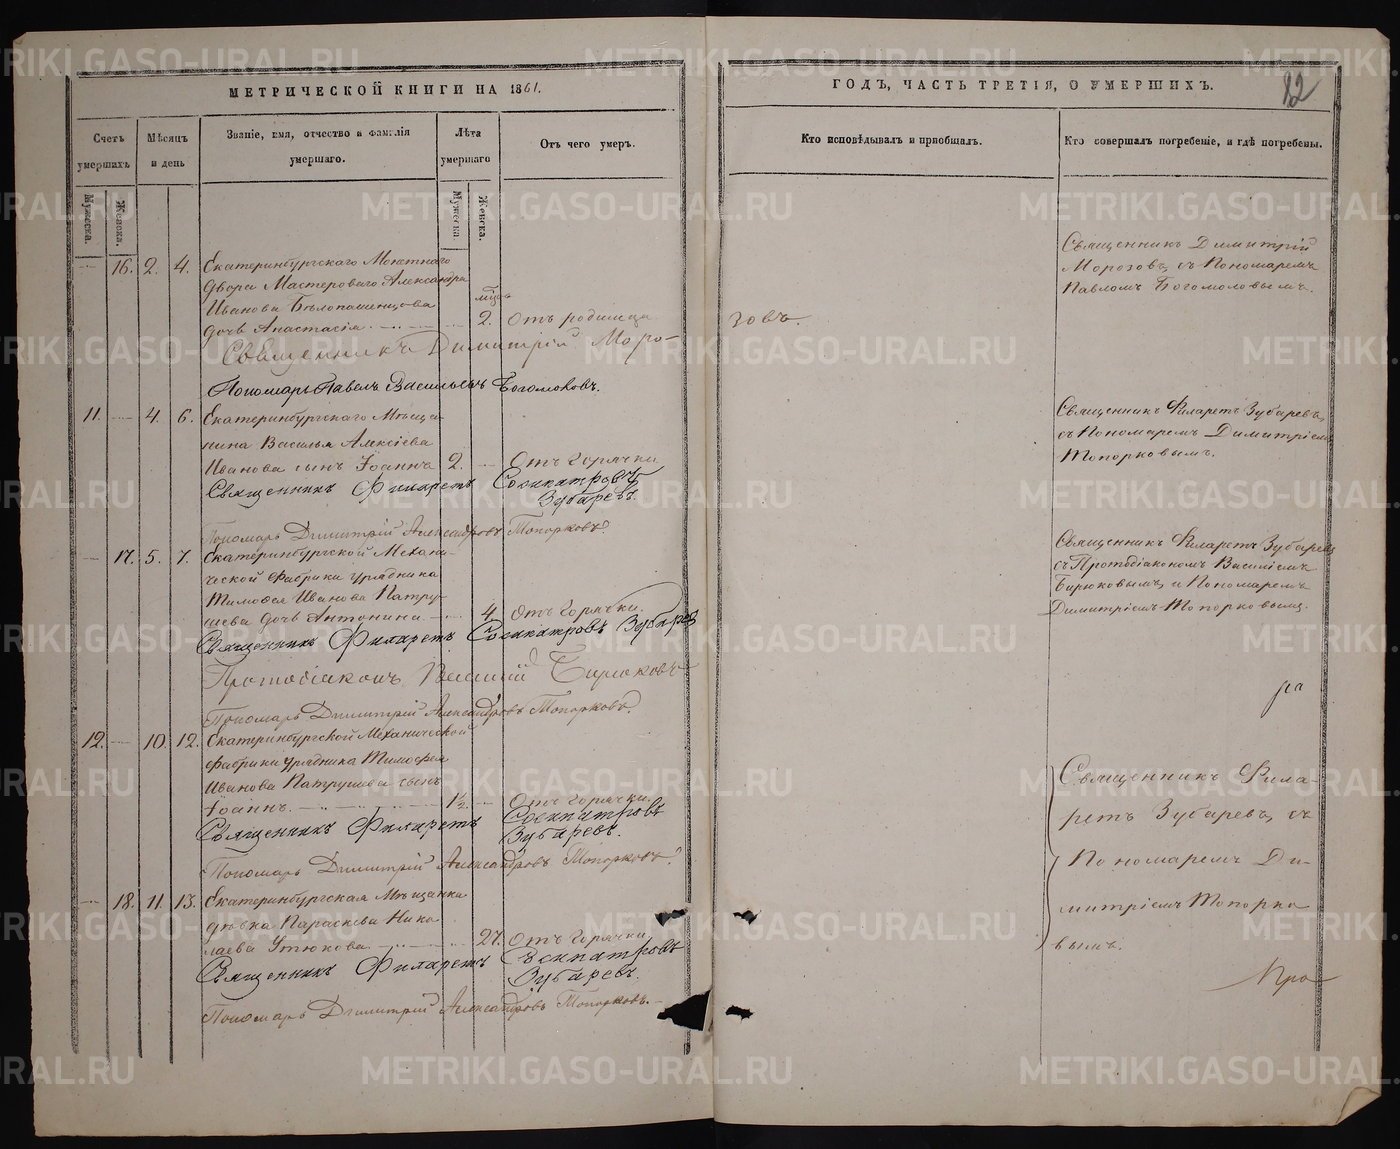 МЕТРИЧЕСКОЙ КНИГИ НА 1861.
ГОДЪ, ЧАСТЬ ТРЕТІЯ, О УМЕРШИХЪ.
82
Счетъ умершихъ
Мѣсяцъ и день
Званіе, имя, отчество и фамилія умершаго.
Лѣта умершаго
Отъ чего умеръ.
Кто исповѣдывалъ и пріобщалъ.
Кто совершалъ погребеніе, и гдѣ погребены.
Мужеска.
Женска.
Мужеска
Женска.
16. 2. 4. Екатеринбургскаго Монетнаго
двора Мастероваго Александра
Иванова Бѣлопашенцова
дочь Анастасія
мѣсъ
2. Отъ родимца
Священникъ Димитрій Моро-
зовъ.
Пономарь Павелъ Васильевъ Богомоловъ.
Священникъ Димитрій
Морозовъ, съ Пономаремъ
Павломъ Богомоловымъ.
11. 4. 6. Екатеринбургскаго Мѣща-
нина Василья Алексіева
Иванова сынъ Іоаннъ 2. Отъ Горячки
Священникъ Филаретъ Сосипатровъ
Зубаревъ.
Пономарь Димитрій Александровъ Топорковъ.
Священникъ Филаретъ Зубаревъ,
съ Пономаремъ Димитріемъ
Топорковымъ.
17. 5. 7. Екатеринбургской Механи-
ческой фабрики урядника
Тимофея Иванова Патру-
шева дочь Антонина 4 Отъ Горячки.
Священникъ Филаретъ Сосипатровъ Зубаревъ
Протодіаконъ Василій Бирюковъ
Пономарь Димитрій Александровъ Топорковъ.
Священникъ Филаретъ Зубаревъ
съ Протодіакономъ Василіемъ
Бирюковымъ, и Пономаремъ
Димитріемъ Топорковымъ.
ра
12. 10. 12. Екатеринбургской Механической
фабрики урядника Тимофея
Иванова Патрушева сынъ
Іоаннъ 1½ Отъ Горячки.
Священникъ Филаретъ Сосипатровъ
Зубаревъ.
Пономарь Димитрій Александровъ Топорковъ.
18. 11. 13. Екатеринбургская Мѣщанка
дѣвка Параскева Нико
лаева Утюкова 27. Отъ Горячки
Священникъ Филаретъ Сосипатровъ
Зубаревъ.
Пономарь Димитрій Александровъ Топорковъ.
Священникъ Фила-
ретъ Зубаревъ, съ
Пономаремъ Ди-
митріемъ Топорко
вымъ.
Про
METRIKI.GASO-URAL.RU